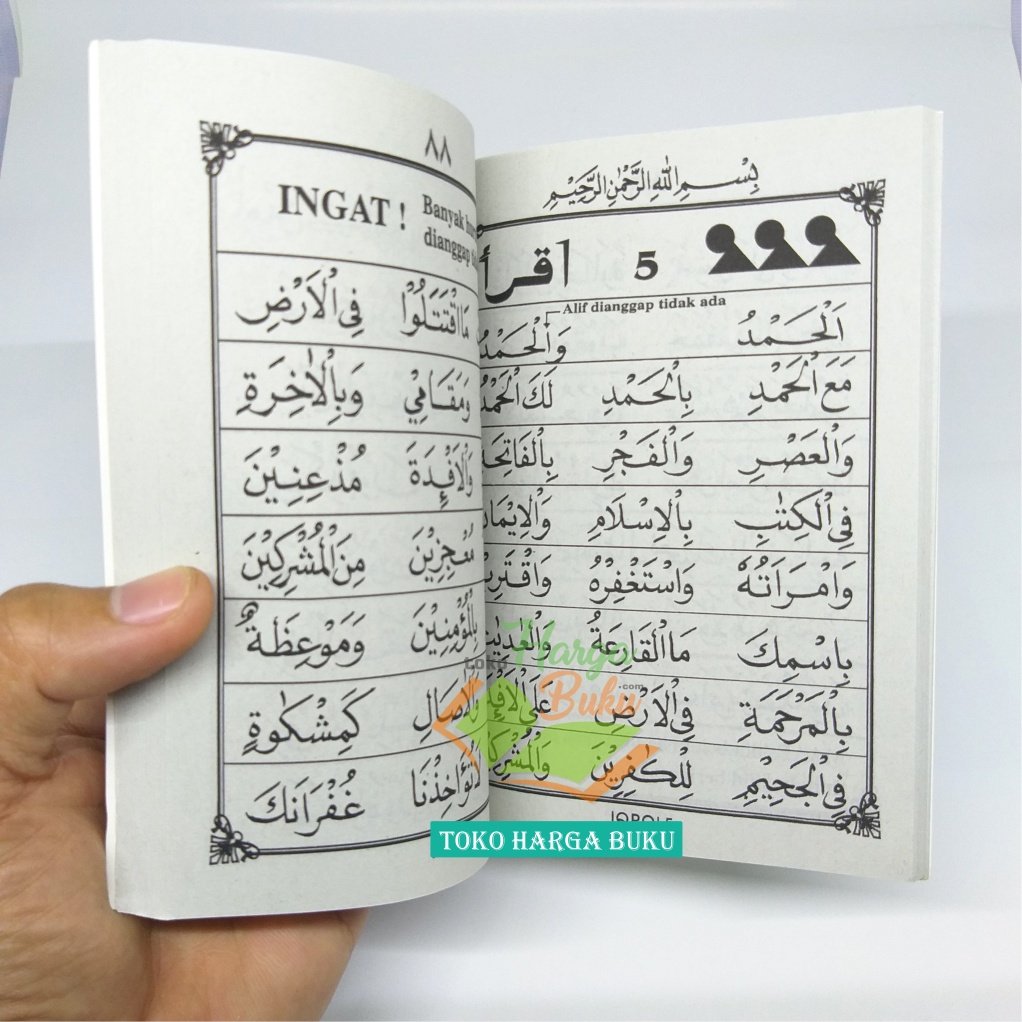 ٨٨
INGAT ! Banyak
dianggap
مَااقْتَتَلُوْا فِى الْاَرْضِ
وَمَقَامِيْ وَبِالْاٰخِرَةِ
وَالْاَفْـِٕدَةَ مُذْعِنِيْنَ
مُعْجِزِيْنَ مِنَ الْمُشْرِكِيْنَ
بِالْمُؤْمِنِيْنَ وَمَوْعِظَةٌ
كَمِشْكٰوةٍ
لَاتُؤَاخِذْنَا غُفْرَانَكَ
بِسْمِ اللهِ الرَّحْمٰنِ الرَّحِيْمِ
5 اقرأ
Alif dianggap tidak ada
اَلْحَمْدُ وَالْحَمْدُ
مَعَ الْحَمْدِ بِالْحَمْدِ لَكَ الْحَمْدُ
وَالْعَصْرِ وَالْفَجْرِ
فِى الْكِتٰبِ بِالْاِسْلَامِ
وَامْرَاَتُهٗ وَاسْتَغْفِرْهُ
بِاسْمِكَ مَاالْقَارِعَةُ
بِالْمَرْحَمَةِ فِى الْاَرْضِ
فِى الْجَحِيْمِ لِلْكٰفِرِيْنَ
TOKO Harga Buku .com
TOKO HARGA BUKU